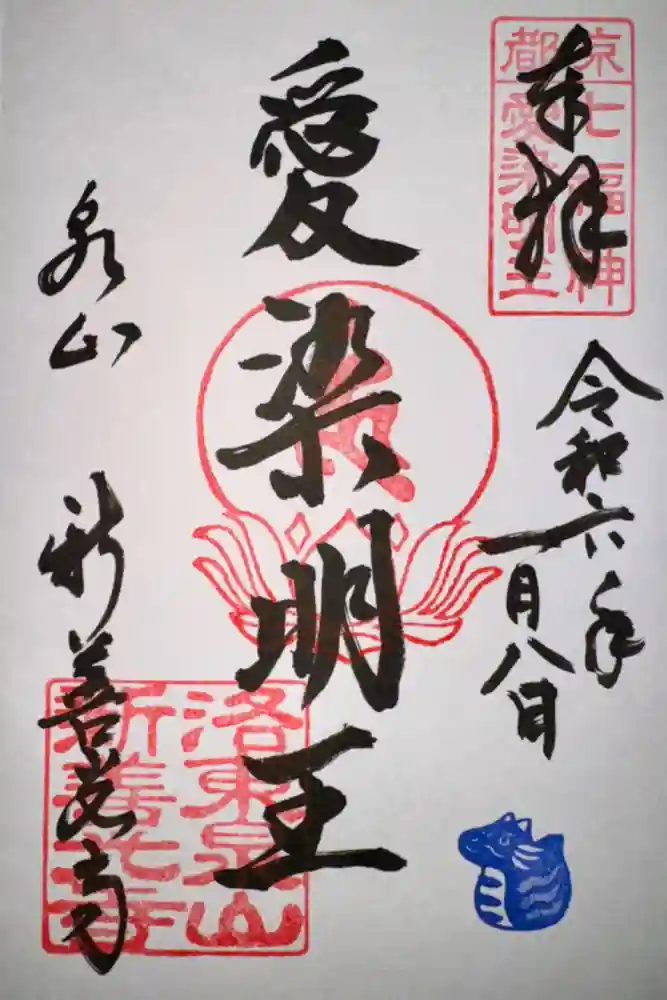 奉拝
京都七福神
愛染明王
令和六年
一月八日
愛染明王
泉山
新善光寺
洛東泉山
新善光寺